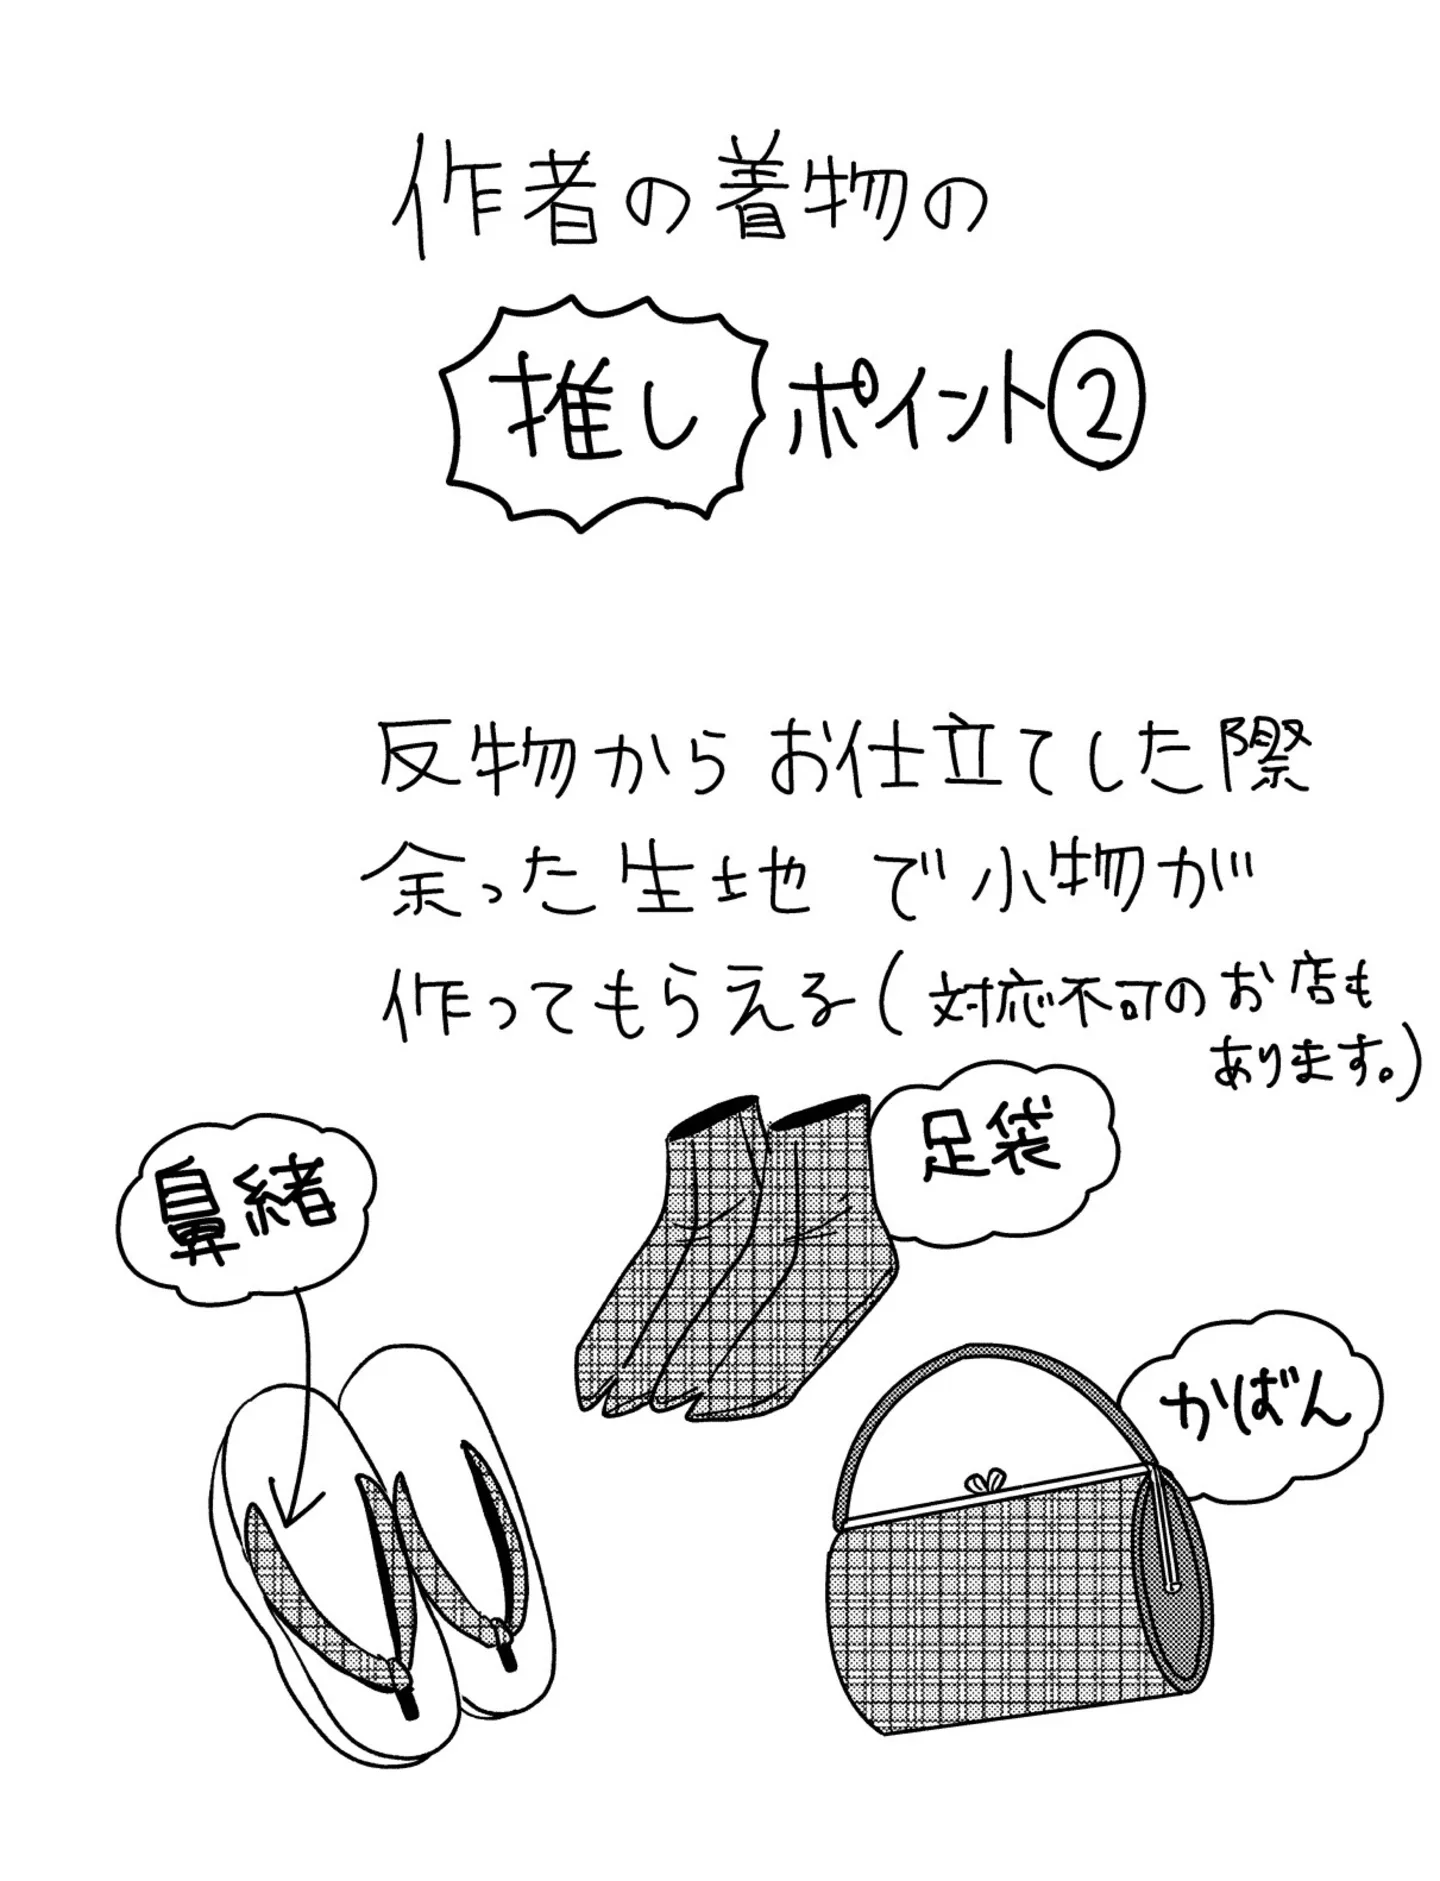 作者の着物の
推しポイント②
反物からお仕立てした際
余った生地で小物が
作ってもらえる(対応不可のお店も
あります。)
足袋
鼻緒
かばん